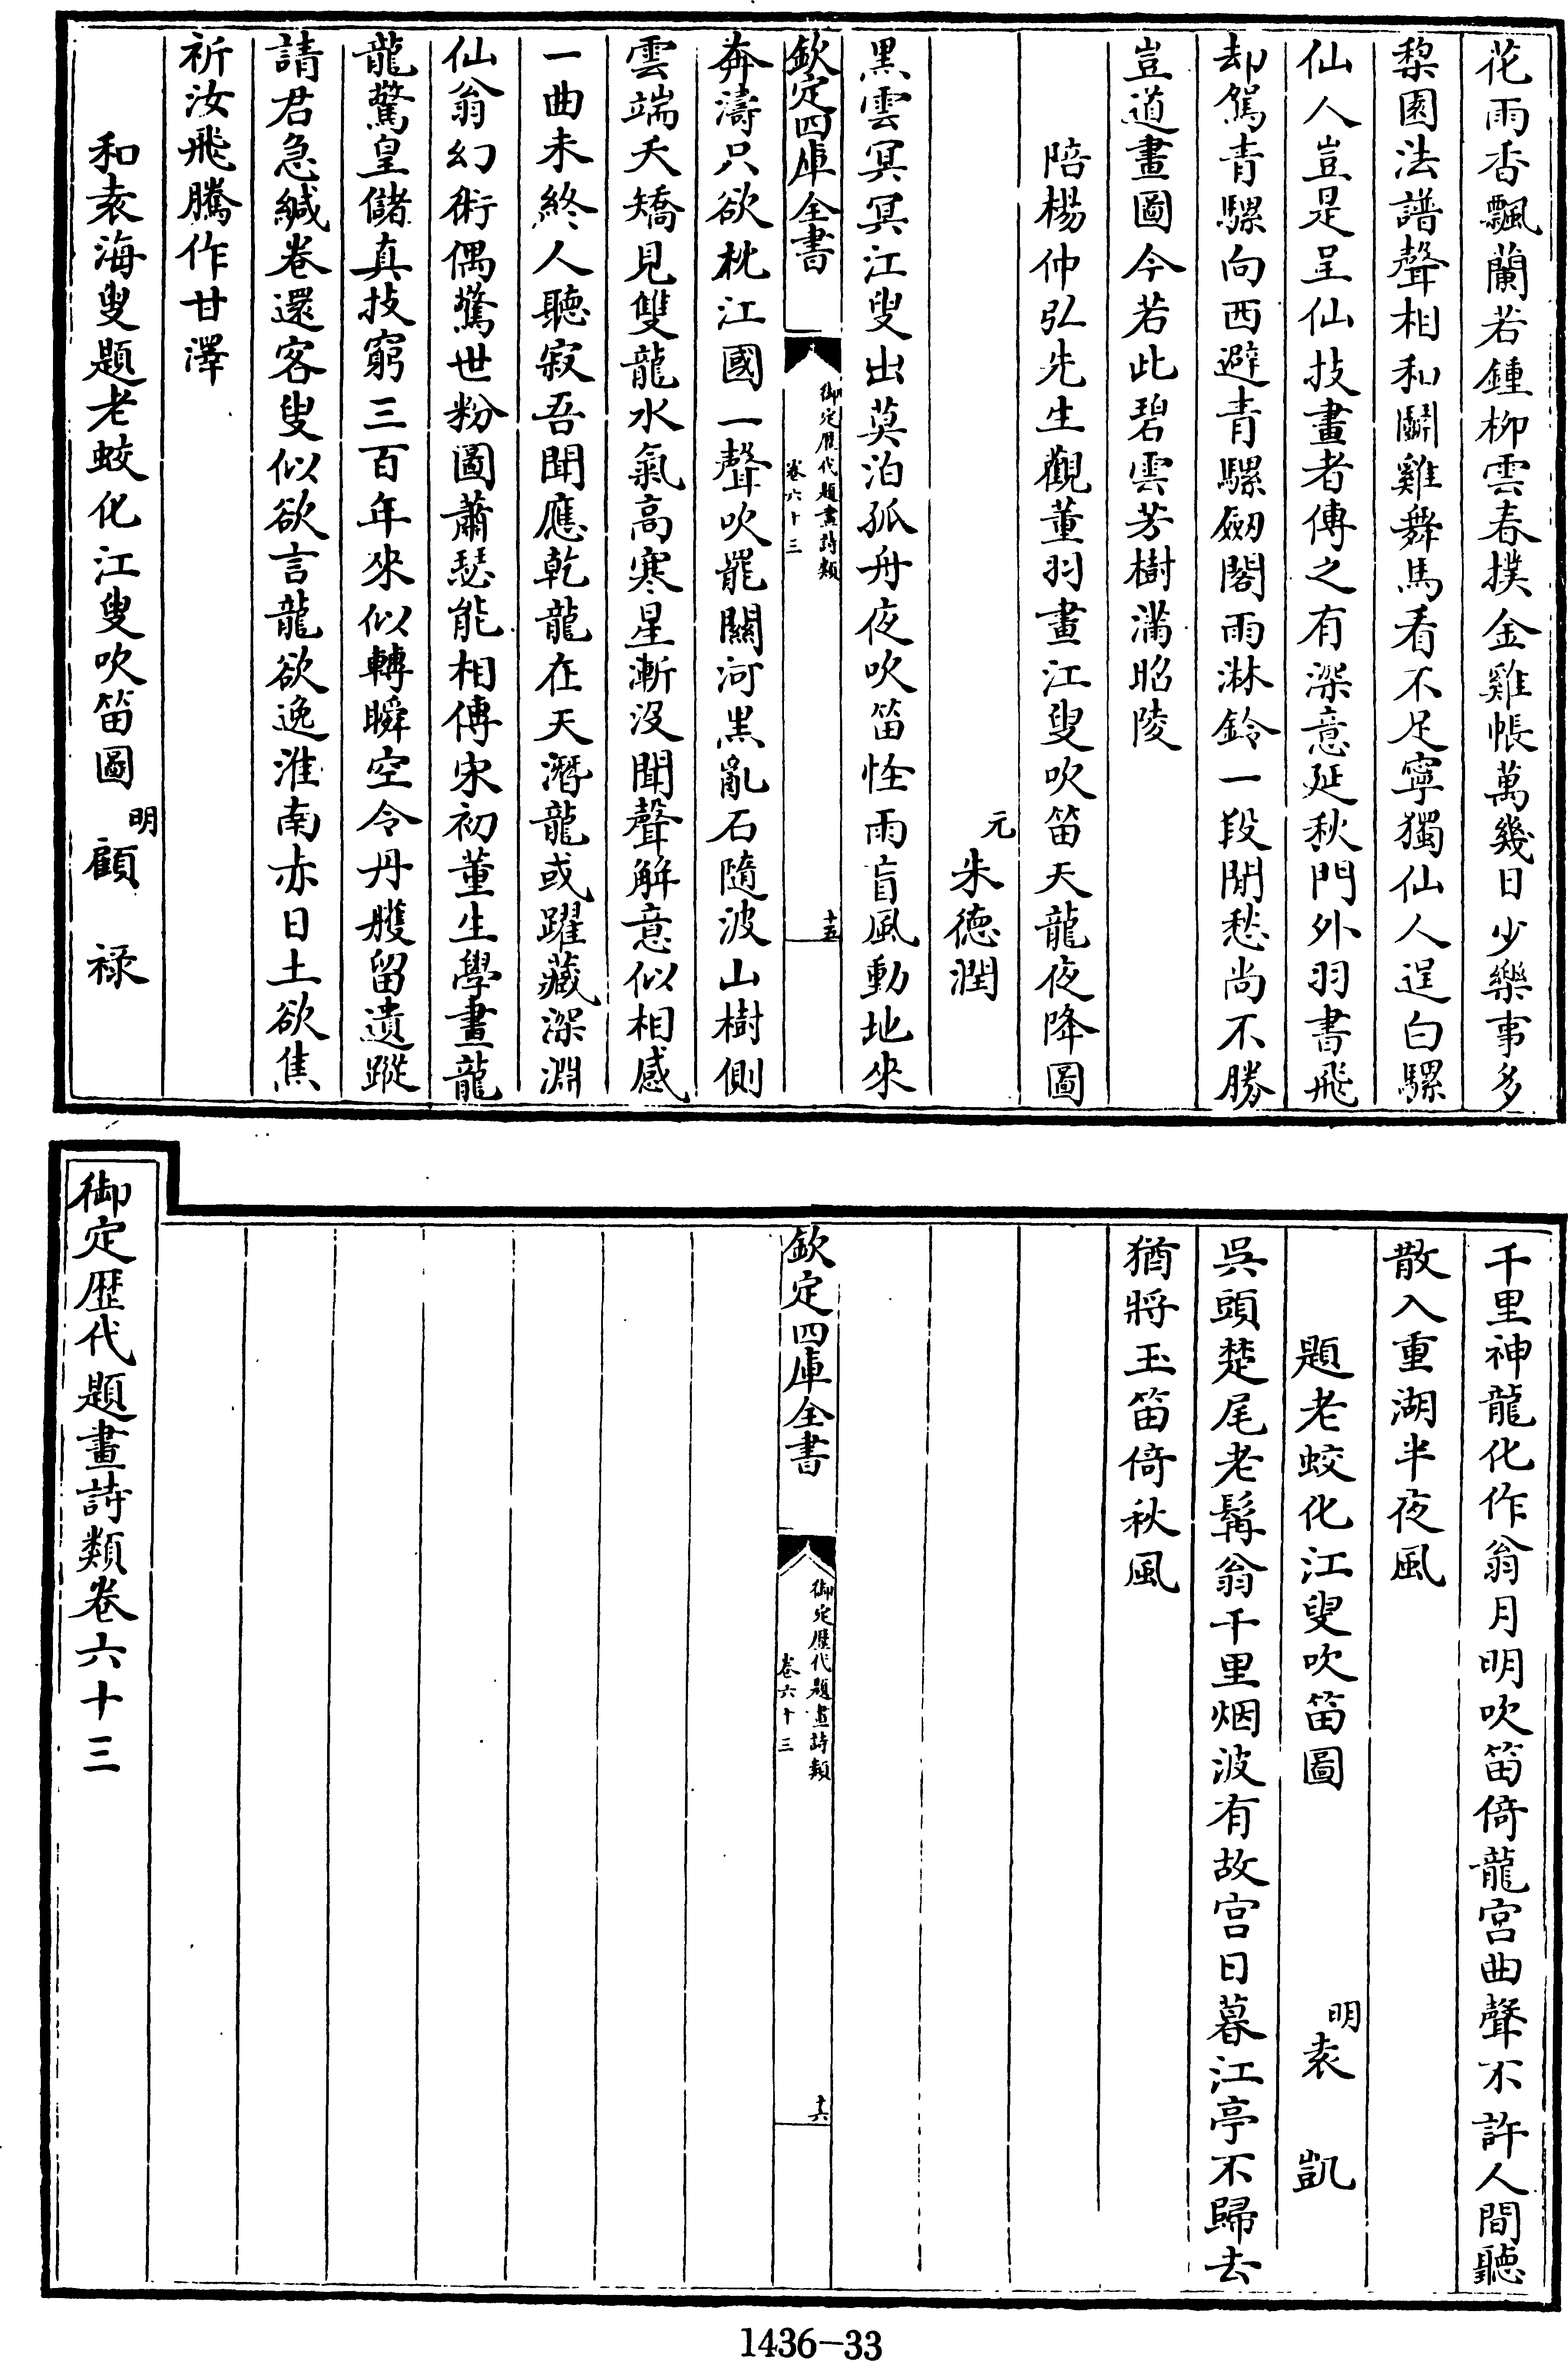 花雨香飄蘭若鍾柳雲春撲金雞帳萬幾日少樂事多
棃園法譜聲相和鬬雞舞馬看不足寧獨仙人逞白騾
仙人豈是呈仙技畫者傳之有深意延秋門外羽書飛
却駕青騾向西避青騾劒閣雨淋鈴一段閒愁尚不勝
豈道畫圖今若此碧雲芳樹滿昭陵
陪楊仲弘先生觀董羽畫江叟吹笛天龍夜降圖
元 朱德潤
黑雲冥冥江叟出莫泊孤舟夜吹笛怪雨盲風動地來
欽定四庫全書
御定歷代題畫詩類
卷六十三
十五
奔濤只欲枕江國一聲吹罷關河黑亂石隨波山樹側
雲端夭矯見雙龍水氣高寒星漸沒聞聲解意似相感
一曲未終人聽寂吾聞應乾龍在天潛龍或躍藏深淵
仙翁幻術偶驚世粉圖蕭瑟能相傳宋初董生學畫龍
龍驚皇儲真技窮三百年來似轉瞬空令丹雘留遺蹤
請君急緘卷還客叟似欲言龍欲逸淮南赤日土欲焦
祈汝飛騰作甘澤
和袁海叟題老蛟化江叟吹笛圖 明 顧 祿
千里神龍化作翁月明吹笛倚龍宮曲聲不許人間聽
散入重湖半夜風
題老蛟化江叟吹笛圖 明 袁 凱
吳頭楚尾老髯翁千里烟波有故宮日暮江亭不歸去
猶將玉笛倚秋風
欽定四庫全書
御定歷代題畫詩類
卷六十三
十六
御定歷代題畫詩類卷六十三
1436-33